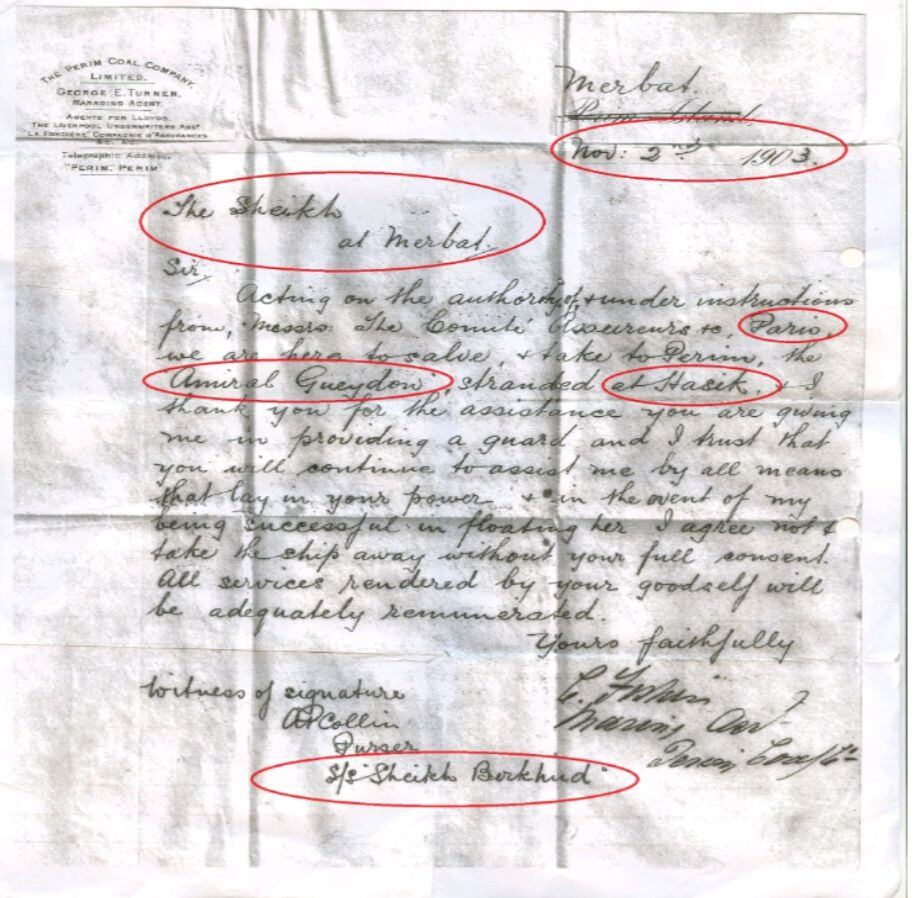 THE PERIM COAL COMPANY,
LIMITED.
GEORGE E. TURNER,
MANAGING AGENT.
AGENTS FOR LLOYDS.
THE LIVERPOOL UNDERWRITERS ASSN
LA FONCIÈRE COMPAGNIE D'ASSURANCES
&C. &C.
Telegraphic Address,
"PERIM, PERIM"
Merbat.
Perim Island,
Nov: 2nd 1903.
The Sheikh
at Merbat.
Sir,
Acting on the authority of, & under instructions
from, Messrs The Comité Assureurs &c, Paris,
we are here to salve, & take to Perim, the
"Amiral Gueydon", stranded at Hasik, & I
thank you for the assistance you are giving
me in providing a guard and I trust that
you will continue to assist me by all means
that lay in your power & in the event of my
being successful in floating her I agree not to
take the ship away without your full consent.
All services rendered by your goodself will
be adequately remunerated.
Yours faithfully
Witness of signature
APCollin
Purser
S/S "Sheikh Berkhud"
Perim Coal Co